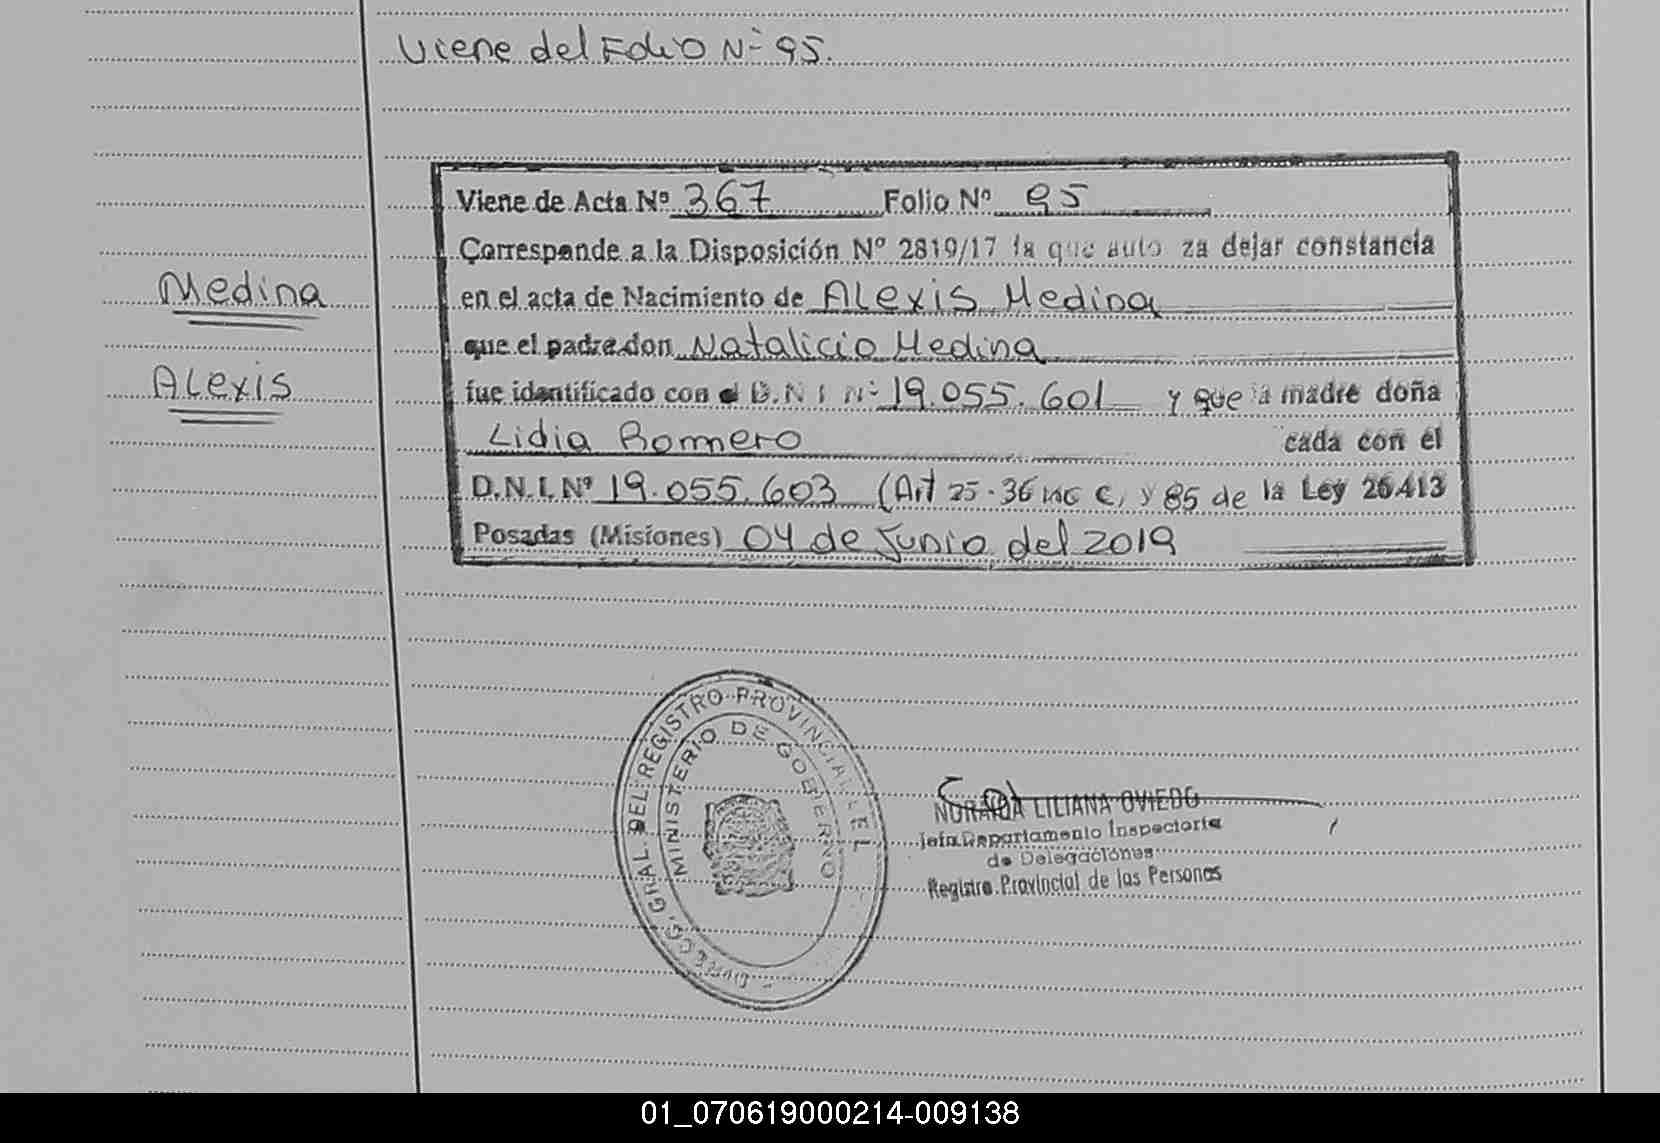 Viene del Folio Nº 95.
Viene de Acta Nº 367 Folio Nº 95
Corresponde a la Disposición Nº 2819/17 la que auto za dejar constancia
Medina
en el acta de Nacimiento de Alexis Medina
que el padre don Natalicio Medina
Alexis
fue identificado con el D.N.I Nº 19.055.601 y que la madre doña
Lidia Romero cada con el
D.N.I. Nº 19.055.603 (Art 25-36 inc c, y 85 de la Ley 26.413
Posadas (Misiones) 04 de Junio del 2019
DIRECC. GRAL. DEL REGISTRO PROVINCIAL DE L
MINISTERIO DE GOBIERNO
LILIANA OVIEDO
Jefa Departamento Inspectoria
de Delegaciones
Registro Provincial de las Personas
01_070619000214-009138